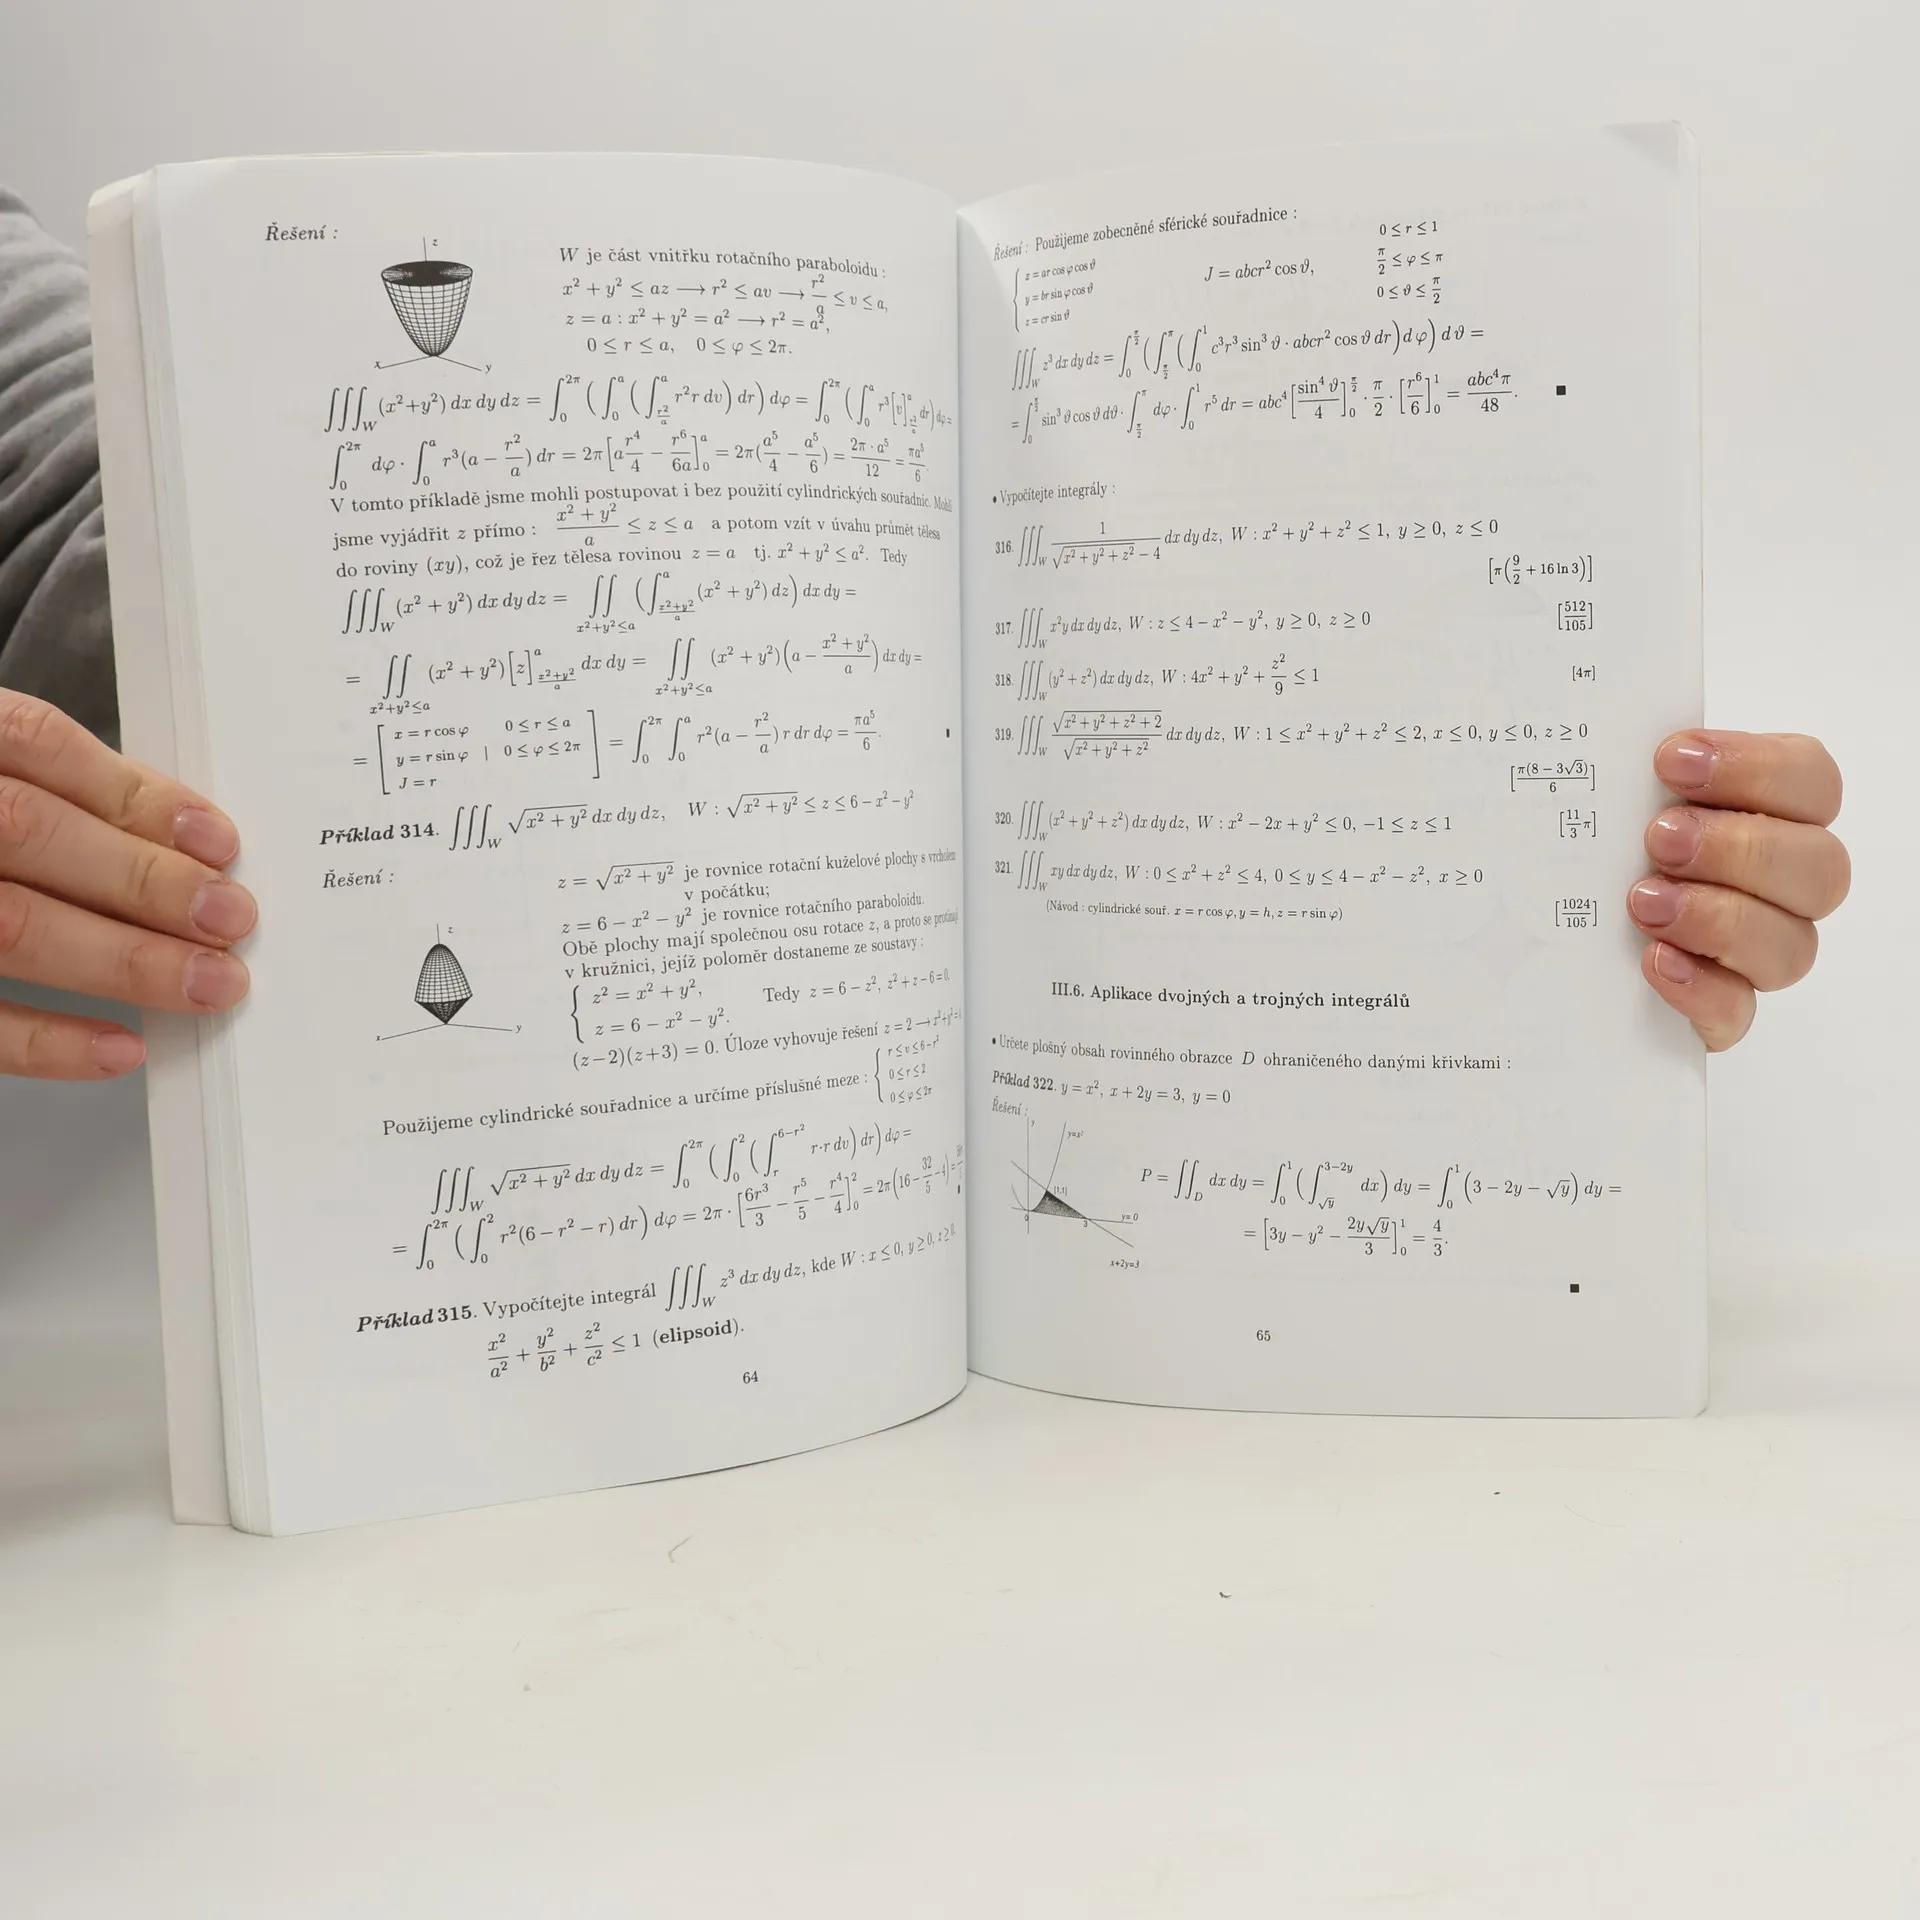 Řešení :
z
x
y
W je část vnitřku rotačního paraboloidu :
x² + y² ≤ az ⟶ r² ≤ av ⟶ r²/a ≤ v ≤ a,
z = a : x² + y² = a² ⟶ r² = a²,
0 ≤ r ≤ a, 0 ≤ φ ≤ 2π.
∭_W (x²+y²) dx dy dz = ∫_0^{2π} (∫_0^a (∫_{r²/a}^a r²r dv) dr) dφ = ∫_0^{2π} (∫_0^a r³[v]_{r²/a}^a dr) dφ =
∫_0^{2π} dφ · ∫_0^a r³(a − r²/a) dr = 2π[a r⁴/4 − r⁶/6a]_0^a = 2π(a⁵/4 − a⁵/6) = 2π·a⁵/12 = πa⁵/6.
V tomto příkladě jsme mohli postupovat i bez použití cylindrických souřadnic. Mohli
jsme vyjádřit z přímo : (x² + y²)/a ≤ z ≤ a a potom vzít v úvahu průmět tělesa
do roviny (xy), což je řez tělesa rovinou z = a tj. x² + y² ≤ a². Tedy
∭_W (x² + y²) dx dy dz = ∬_{x²+y²≤a} (∫_{(x²+y²)/a}^a (x² + y²) dz) dx dy =
= ∬_{x²+y²≤a} (x² + y²)[z]_{(x²+y²)/a}^a dx dy = ∬_{x²+y²≤a} (x² + y²)(a − (x² + y²)/a) dx dy =
= [x = r cos φ 0 ≤ r ≤ a
y = r sin φ | 0 ≤ φ ≤ 2π
J = r] = ∫_0^{2π} ∫_0^a r²(a − r²/a) r dr dφ = πa⁵/6.
Příklad 314. ∭_W √(x² + y²) dx dy dz, W : √(x² + y²) ≤ z ≤ 6 − x² − y²
Řešení :
z
x
y
z = √(x² + y²) je rovnice rotační kuželové plochy s vrcholem
v počátku;
z = 6 − x² − y² je rovnice rotačního paraboloidu.
Obě plochy mají společnou osu rotace z, a proto se protínají
v kružnici, jejíž poloměr dostaneme ze soustavy :
{ z² = x² + y²,
z = 6 − x² − y². Tedy z = 6 − z², z² + z − 6 = 0,
(z−2)(z+3) = 0. Úloze vyhovuje řešení z = 2 ⟶ x²+y²=4
Použijeme cylindrické souřadnice a určíme příslušné meze : { r ≤ v ≤ 6−r²
0 ≤ r ≤ 2
0 ≤ φ ≤ 2π
∭_W √(x² + y²) dx dy dz = ∫_0^{2π} (∫_0^2 (∫_r^{6−r²} r·r dv) dr) dφ =
= ∫_0^{2π} (∫_0^2 r²(6 − r² − r) dr) dφ = 2π · [6r³/3 − r⁵/5 − r⁴/4]_0^2 = 2π(16 − 32/5 − 4) =
Příklad 315. Vypočítejte integrál ∭_W z³ dx dy dz, kde W : x ≤ 0, y ≥ 0, z ≥ 0,
x²/a² + y²/b² + z²/c² ≤ 1 (elipsoid).
64
Řešení : Použijeme zobecněné sférické souřadnice :
{ x = ar cos φ cos ϑ
y = br sin φ cos ϑ
z = cr sin ϑ
J = abcr² cos ϑ,
0 ≤ r ≤ 1
π/2 ≤ φ ≤ π
0 ≤ ϑ ≤ π/2
∭_W z³ dx dy dz = ∫_0^{π/2} (∫_{π/2}^π (∫_0^1 c³r³ sin³ ϑ · abcr² cos ϑ dr) dφ) dϑ =
= ∫_0^{π/2} sin³ ϑ cos ϑ dϑ · ∫_{π/2}^π dφ · ∫_0^1 r⁵ dr = abc⁴[sin⁴ ϑ/4]_0^{π/2} · π/2 · [r⁶/6]_0^1 = abc⁴π/48. ■
• Vypočítejte integrály :
316. ∭_W 1/(√(x² + y² + z²) − 4) dx dy dz, W : x² + y² + z² ≤ 1, y ≥ 0, z ≤ 0
[π(9/2 + 16 ln 3)]
317. ∭_W x²y dx dy dz, W : z ≤ 4 − x² − y², y ≥ 0, z ≥ 0 [512/105]
318. ∭_W (y² + z²) dx dy dz, W : 4x² + y² + z²/9 ≤ 1 [4π]
319. ∭_W √(x² + y² + z² + 2)/√(x² + y² + z²) dx dy dz, W : 1 ≤ x² + y² + z² ≤ 2, x ≤ 0, y ≤ 0, z ≥ 0
[π(8 − 3√3)/6]
320. ∭_W (x² + y² + z²) dx dy dz, W : x² − 2x + y² ≤ 0, −1 ≤ z ≤ 1 [11/3 π]
321. ∭_W xy dx dy dz, W : 0 ≤ x² + z² ≤ 4, 0 ≤ y ≤ 4 − x² − z², x ≥ 0
(Návod : cylindrické souř. x = r cos φ, y = h, z = r sin φ) [1024/105]
III.6. Aplikace dvojných a trojných integrálů
• Určete plošný obsah rovinného obrazce D ohraničeného danými křivkami :
Příklad 322. y = x², x + 2y = 3, y = 0
Řešení :
y
y=x²
[1,1]
0
3
y=0
x+2y=3
P = ∬_D dx dy = ∫_0^1 (∫_{√y}^{3−2y} dx) dy = ∫_0^1 (3 − 2y − √y) dy =
= [3y − y² − 2y√y/3]_0^1 = 4/3.
■
65